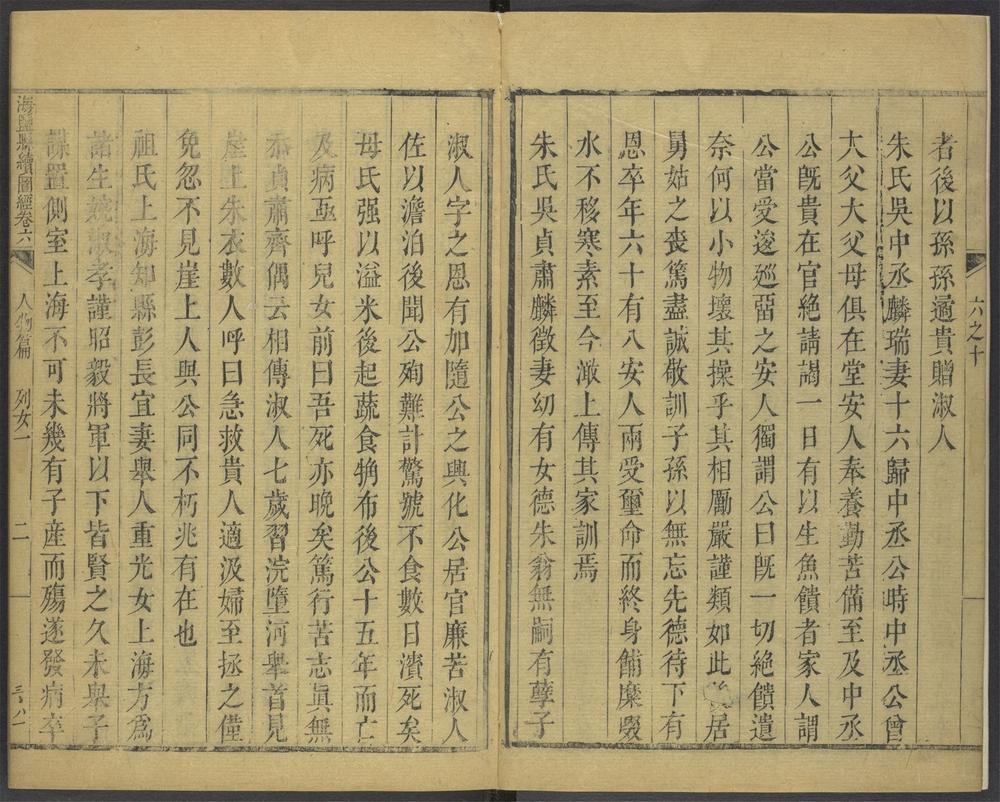 六之十
者後以孫孫適貴贈淑人
朱氏吳中丞麟瑞妻十六歸中丞公時中丞公曾
大父大父母俱在堂安人奉養勤苦備至及中丞
公旣貴在官絶請謁一日有以生魚饋者家人謂
公當受逡廵畱之安人獨謂公曰旣一切絶饋遺
奈何以小物壞其操乎其相勵嚴謹類如此居
舅姑之喪篤盡誠敬訓子孫以無忘先德待下有
恩卒年六十有八安人兩受璽命而終身餔糜啜
水不移寒素至今澉上傳其家訓焉
朱氏吳貞肅麟徵妻幼有女德朱翁無嗣有孽子
淑人字之恩有加隨公之興化公居官廉苦淑人
佐以澹泊後聞公殉難計驚號不食數日瀕死矣
母氏强以溢米後起蔬食觕布後公十五年而亡
及病亟呼兒女前曰吾死亦晚矣篤行苦志眞無
忝貞肅齊偶云相傳淑人七歲習浣墮河舉首見
崖上朱衣數人呼曰急救貴人適汲婦至拯之僅
免忽不見崖上人與公同不朽兆有在也
祖氏上海知縣彭長宜妻舉人重光女上海方爲
諸生婉淑孝謹昭毅將軍以下皆賢之久未舉子
謀置側室上海不可未幾有子産而殤遂發病卒
海鹽縣續圖經卷六
人物篇
列女一
二